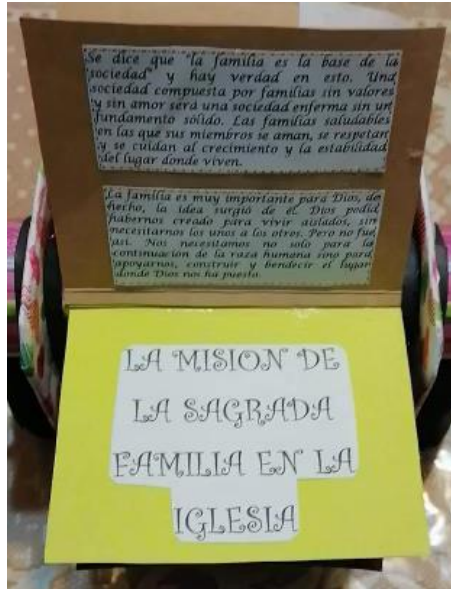 Se dice que "la familia es la base de la
sociedad" y hay verdad en esto. Una
sociedad compuesta por familias sin valores
y sin amor será una sociedad enferma sin un
fundamento sólido. Las familias saludables
en las que sus miembros se aman, se respetan
y se cuidan al crecimiento y la estabilidad
del lugar donde viven.
La familia es muy importante para Dios, de
hecho, la idea surgió de él. Dios podía
habernos creado para vivir aislados, sin
necesitarnos los unos a los otros. Pero no fue
así. Nos necesitamos no solo para la
continuación de la raza humana sino para
apoyarnos, construir y bendecir el lugar
donde Dios nos ha puesto.
LA MISION DE
LA SAGRADA
FAMILIA EN LA
IGLESIA